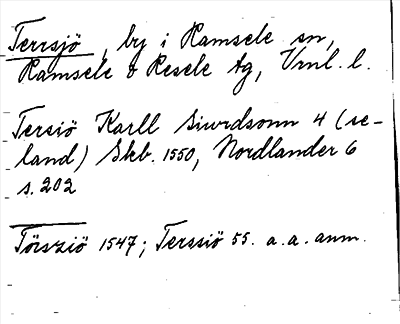 Terrsjö, by i Ramsele sn,
Ramsele & Resele tg, Vrnl. l.
Tersiö Karll Siurdsonn 4 (se-
land) Skb. 1550, Nordlander 6
s. 202
Törsziö 1547; Terssiö 55. a. a. anm.